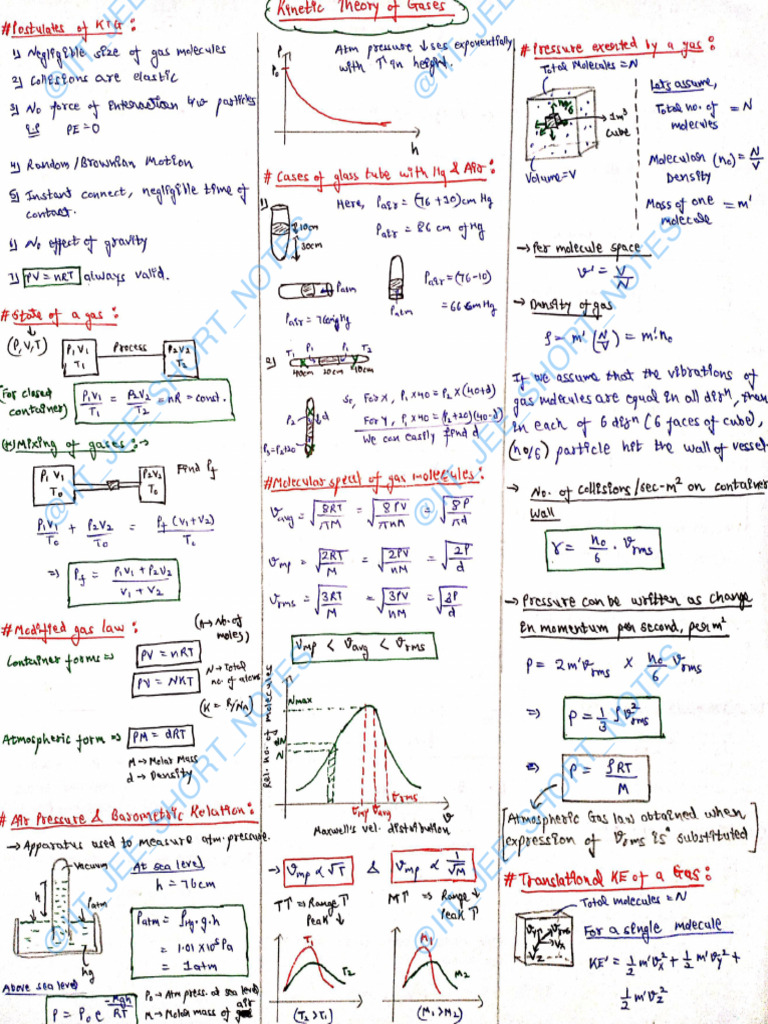 Kinetic Theory of Gases
#Postulates of KTG:
1) Negligible size of gas molecules
2) Collisions are elastic
3) No force of interaction b/w particles
PE=0
4) Random/Brownian Motion
5) Instant connect, negligible time of
contact.
6) No effect of gravity
7) PV = nRT always valid.
#State of a gas:
(P,V,T)
P₁V₁
T₁
Process
P₂V₂
T₂
(For closed
container)
P₁V₁/T₁ = P₂V₂/T₂ = nR = const.
Mixing of gases:→
P₁V₁
T₀
P₂V₂
T₀
Find Pf
P₁V₁/T₀ + P₂V₂/T₀ = Pf(V₁+V₂)/T₀
⇒ Pf = P₁V₁+P₂V₂/V₁+V₂
#Modified gas law:
(n→No. of
moles)
Container form⇒ PV = nRT
PV = NKT
N→Total
no. of atoms
(K = R/NA)
Atmospheric form ⇒ PM = dRT
M→Molar Mass
d→Density
# Air Pressure & Barometric Relation:
→ Apparatus used to measure atm. pressure.
vacuum
h
Patm
hg
At sea level
h = 76cm
Patm = ρHg.g.h
= 1.01×10⁵ Pa
= 1 atm
Above sea level
P = P₀ e^(-Mgh/RT)
P₀→Atm press. at sea level
M→Molar mass of air
P
P₀
h
Atm pressure ↓ses exponentially
with ↑ in height.
# Cases of glass tube with Hg & Air:
1)
10cm
30cm
Here, Pair = (76+10)cm Hg
Pair = 86 cm of Hg
Patm
Pair = 76cmHg
Patm
Pair = (76-10)
= 66cmHg
2)
T₁ P₁ P₁ T₂
40cm 20cm 40cm
P₂
d
P₃=P₂+20
So, For X, P₁×40 = P₂×(40+d)
For Y, P₁×40 = (P₂+20)(40-d)
We can easily find d
#Molecular speed of gas molecules:
vavg = √8RT/πM = √8PV/πnM = √8P/πd
vmp = √2RT/M = √2PV/nM = √2P/d
vrms = √3RT/M = √3PV/nM = √3P/d
Vmp < Vavg < Vrms
Rel. no. of molecules
Nmax
dN
N
vmp vavg vrms
v
Maxwell's vel. distribution
→ Vmp ∝ √T & Vmp ∝ 1/√M
T↑ ⇒ Range ↑
Peak ↓
M↑ ⇒ Range ↓
Peak ↑
T₁
T₂
(T₂>T₁)
M₁
M₂
(M₁>M₂)
# Pressure exerted by a gas:
Total Molecules = N
n₀/6
1m³
Cube
Volume=V
Let's assume,
Total no. of
molecules = N
Molecular
Density (n₀) = N/V
Mass of one
molecule = m'
→ Per molecule space
v' = V/N
→ Density of gas
ρ = m'(N/V) = m'.n₀
If we assume that the vibrations of
gas molecules are equal in all dirn, then
in each of 6 dirn (6 faces of cube),
(n₀/6) particle hit the wall of vessel
→ No. of collisions/sec-m² on container
wall
r = n₀/6 . vrms
→ Pressure can be written as change
in momentum per second, per m²
P = 2m'vrms × n₀/6 vrms
⇒ P = 1/3 ρv²rms
⇒ P = ρRT/M
[Atmospheric Gas law obtained when
expression of vrms is substituted]
# Translational KE of a Gas:
Total molecules = N
vy vrms
vx
vz
For a single molecule
KE' = 1/2 m'vx² + 1/2 m'vy² +
1/2 m'vz²
@IIT_JEE_SHORT_NOTES
@IIT_JEE_SHORT_NOTES
@IIT_JEE_SHORT_NOTES
@IIT_JEE_SHORT_NOTES